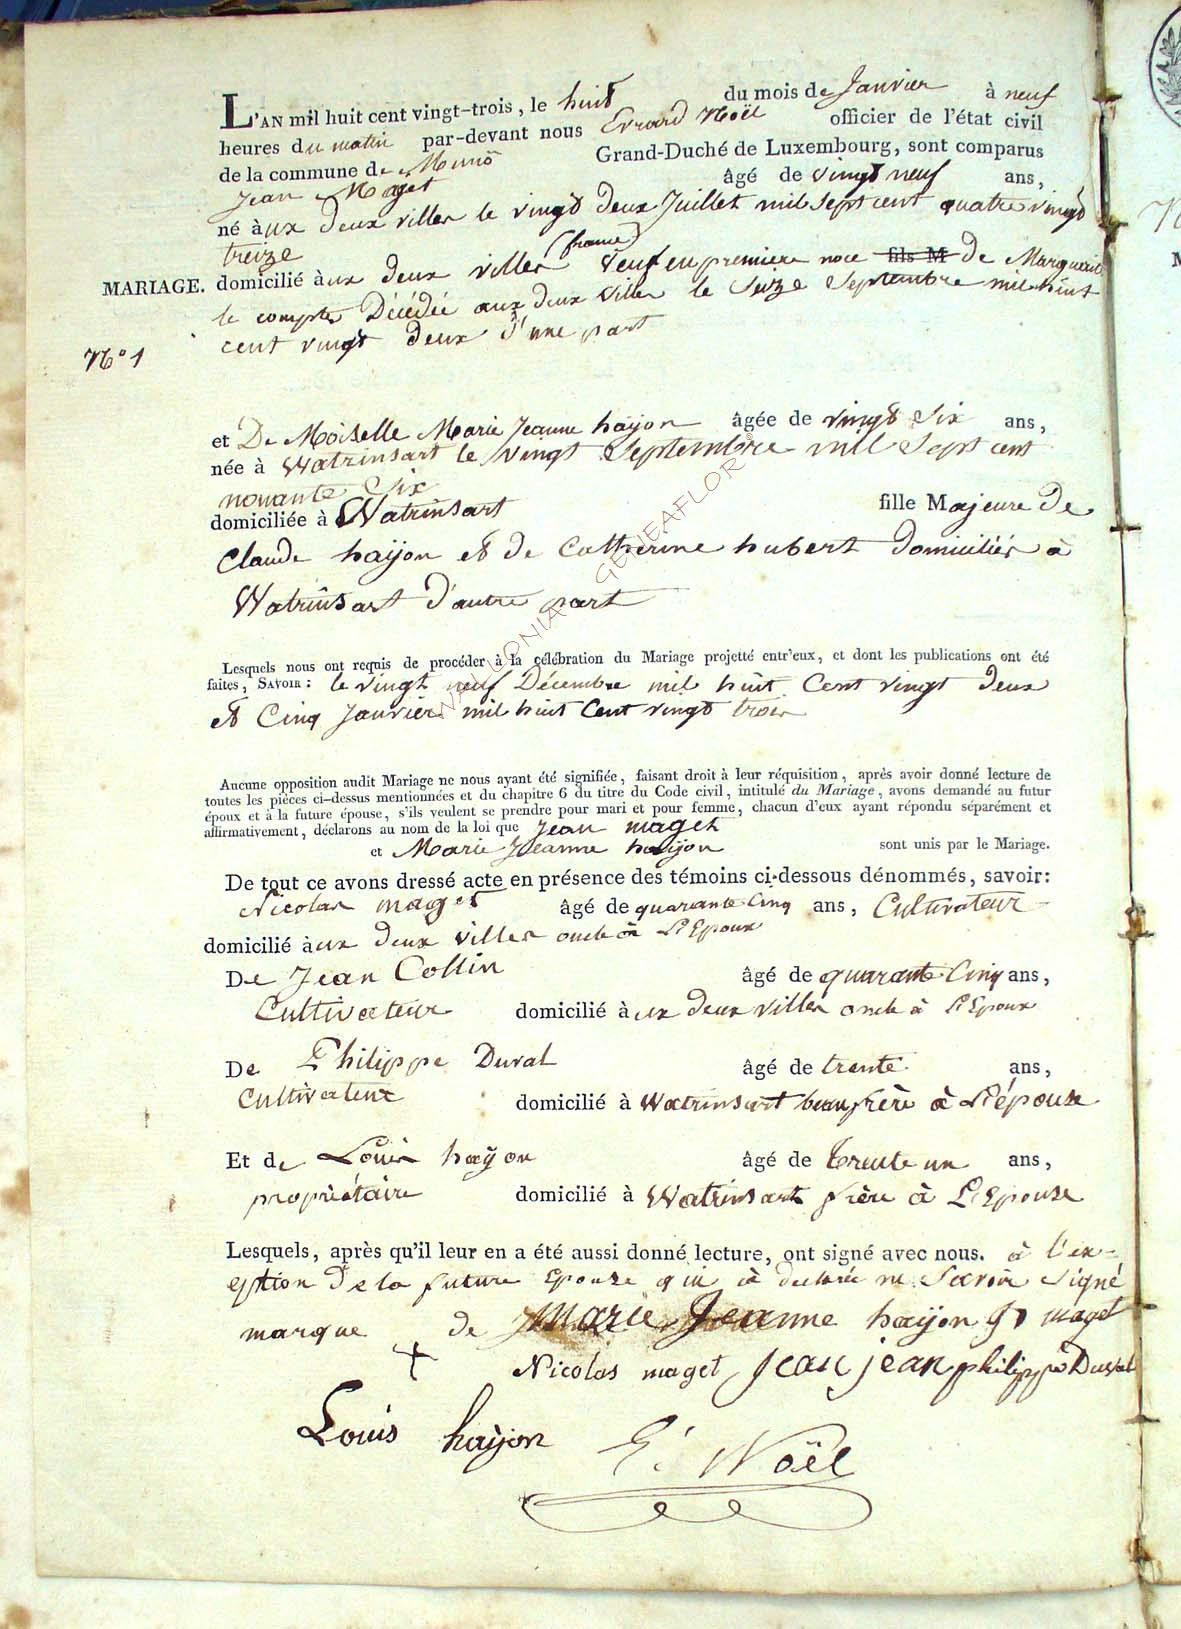 L'AN mil huit cent vingt-trois, le huit du mois de Janvier à neuf
heures du matin par-devant nous Errard Noël officier de l'état civil
de la commune de Muno Grand-Duché de Luxembourg, sont comparus
Jean Maget âgé de vingt neuf ans,
né à ux deux villes le vingt deux Juillet mil sept cent quatre vingt
treize
(france)
MARIAGE. domicilié à ux deux villes veuf en premiere noce fils M de Marguerite
le compte Décédée aux deux villes le Seize Septembre mil huit
cent vingt deux d'une part
No 1
et De Moiselle Marie Jeanne haÿon âgée de vingt Six ans,
née à Watrinsart le vingt Septembre mil Sept cent
novante Six
domiciliée à Watrinsart fille Majeure de
Claude haÿon et de Catherine hubert domiciliés à
Watrinsart d'autre part
WALLONIA GENEAFLOR
Lesquels nous ont requis de procéder à la célébration du Mariage projetté entr'eux, et dont les publications ont été
faites, SAVOIR : le vingt neuf Décembre mil huit Cent vingt deux
et Cinq Janvier mil huit Cent vingt trois
Aucune opposition audit Mariage ne nous ayant été signifiée, faisant droit à leur réquisition, après avoir donné lecture de
toutes les pièces ci-dessus mentionnées et du chapitre 6 du titre du Code civil, intitulé du Mariage, avons demandé au futur
époux et à la future épouse, s'ils veulent se prendre pour mari et pour femme, chacun d'eux ayant répondu séparément et
affirmativement, déclarons au nom de la loi que Jean maget
et Marie Jeanne haÿon sont unis par le Mariage.
De tout ce avons dressé acte en présence des témoins ci-dessous dénommés, savoir:
Nicolas maget âgé de quarante Cinq ans, Cultivateur
domicilié à ux deux villes oncle à L'Epoux
De Jean Collin âgé de quarante Cinq ans,
Cultivateur domicilié à ux deux villes oncle à L'Epoux
De Philippe Duval âgé de trente ans,
Cultivateur domicilié à Watrinsart beaufrère à L'épouse
Et de Louis haÿon âgé de trente un ans,
propriétaire domicilié à Watrinsart frère à L'Epouse
Lesquels, après qu'il leur en a été aussi donné lecture, ont signé avec nous. à l'ex-
eption de la future Epouse qui à declarée ne Savoir Signé
marque de Marie Jeanne haÿon maget
Nicolas maget Jean jean philippe Duval
Louis haÿon E. Noël